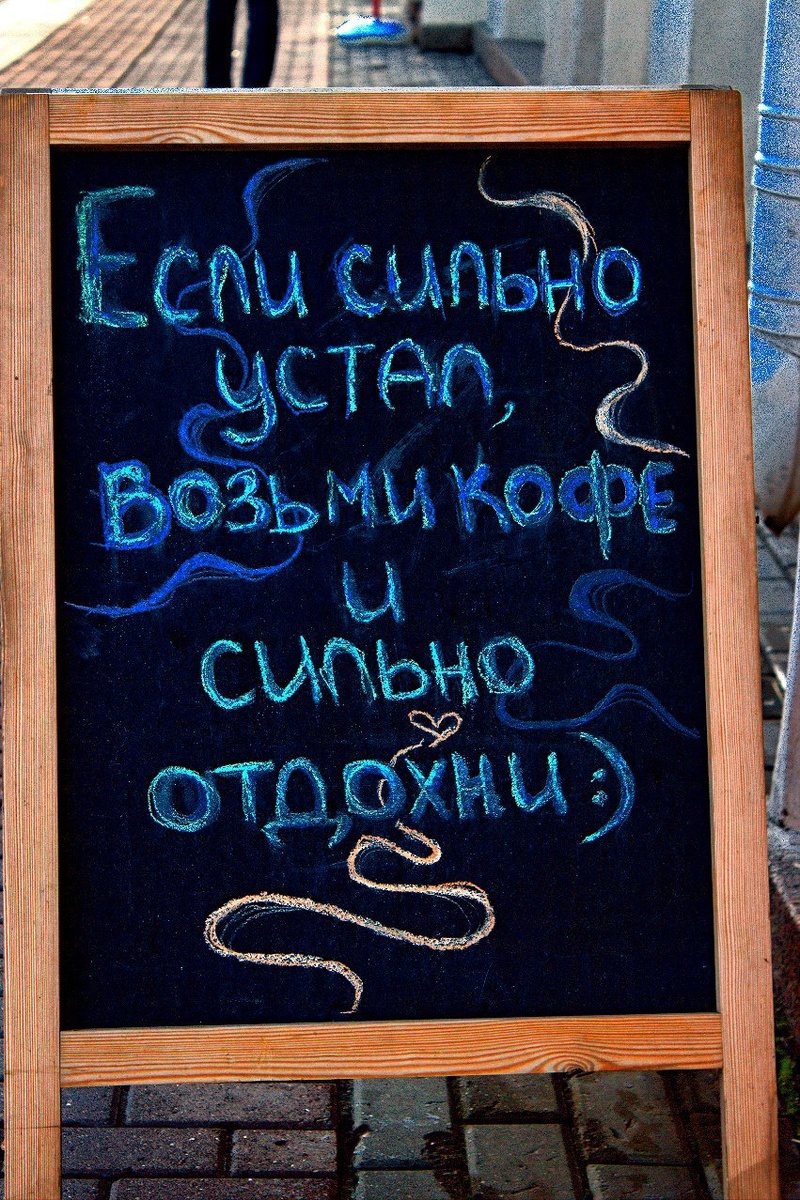 Если сильно
устал,
возьми кофе
и
сильно
отдохни :)